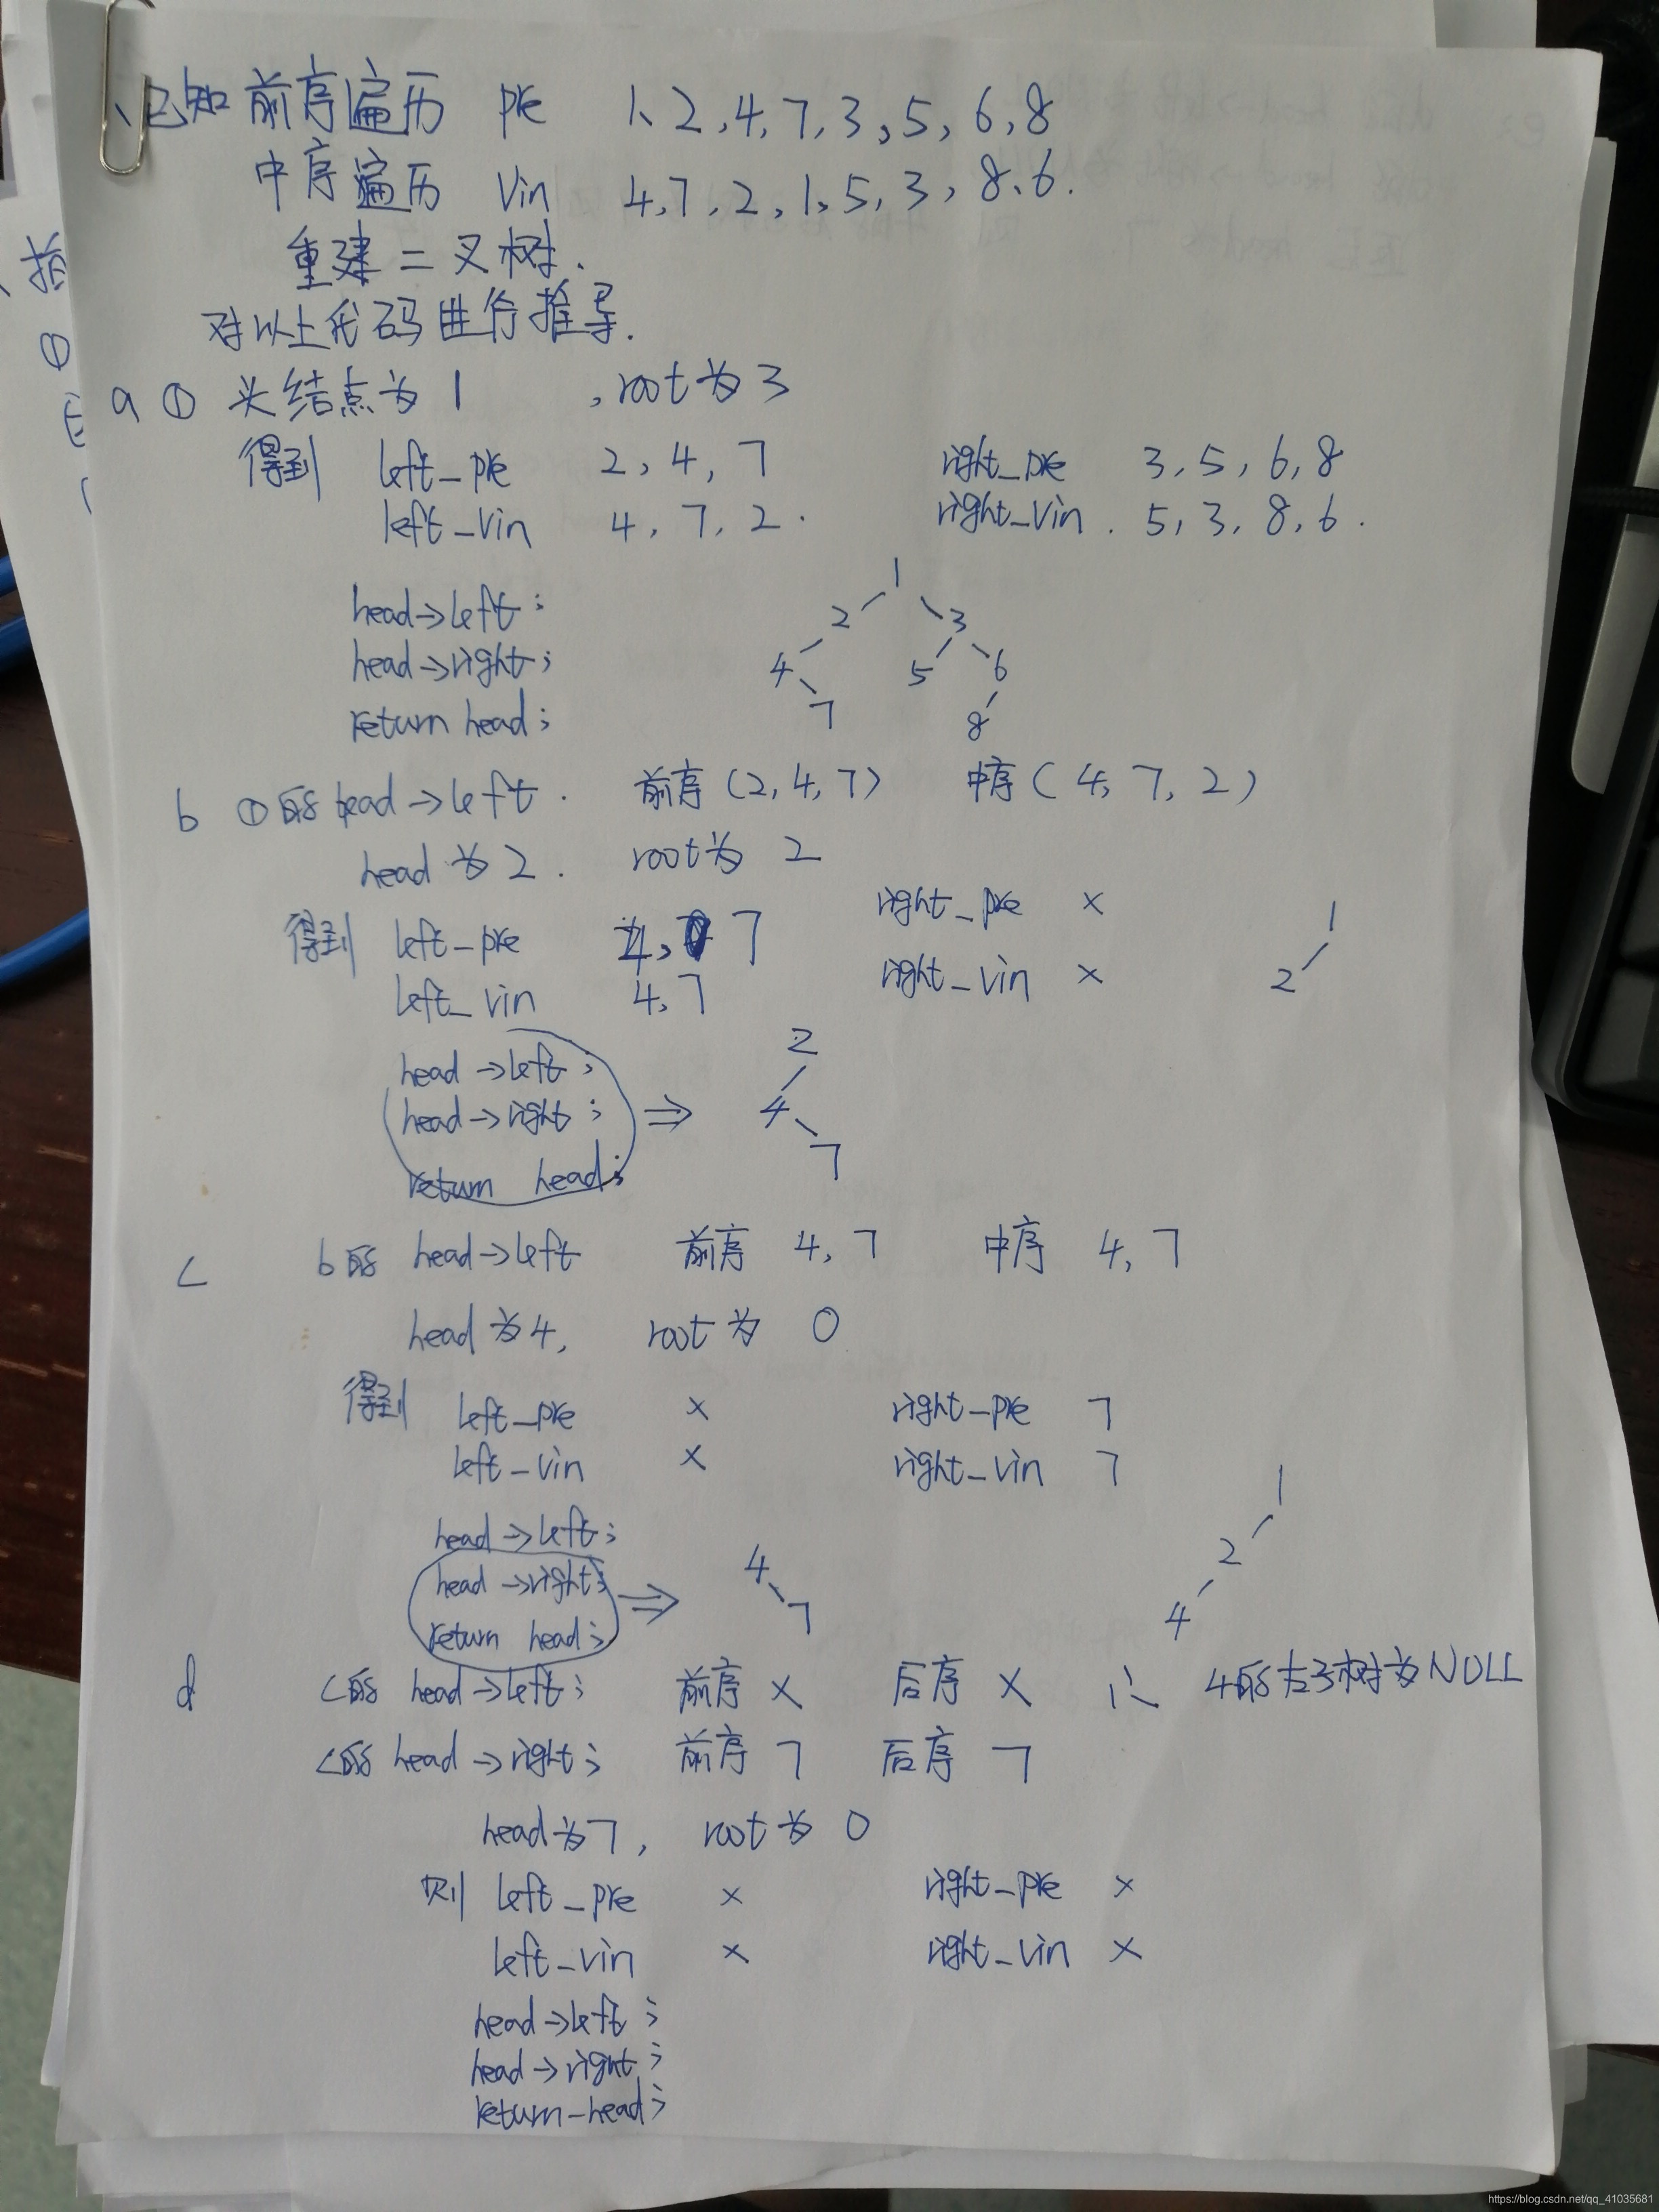 、已知 前序遍历 pre 1、2,4,7,3,5,6,8
中序遍历 vin 4,7,2,1,5,3,8、6.
重建二叉树.
对以上代码进行推导.
a ① 头结点为1 ,root为3
得到 left_pre 2,4,7 right_pre 3,5,6,8
left_vin 4,7,2. right_vin. 5,3,8,6.
1
head->left; 2 3
head->right; 4 5 6
return head; 7 8
b ①的 head->left. 前序(2,4,7) 中序(4,7,2)
head为2. root为2
得到 left_pre 4, 7 right_pre × 1
left_vin 4,7 right_vin × 2
head->left; 2
head->right; => 4
return head; 7
c b的 head->left 前序 4,7 中序 4,7
head为4, root为 0
得到 left_pre × right_pre 7
left_vin × right_vin 7
head->left; 1
head->right; => 4 2
return head; 7 4
d c的 head->left; 前序 × 后序 × 4的左子树为NULL
c的 head->right; 前序 7 后序 7
head为7, root为 0
则 left_pre × right_pre ×
left_vin × right_vin ×
head->left;
head->right;
return-head;
指
①
https://blog.csdn.net/qq_41035681